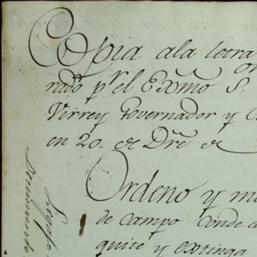 Copia ala letra
rado pr. el Exmo. S.
Virrey Governador y C
en 20. de Dre. de
Ordeno y m
de Campo Conde d
quite y extinga